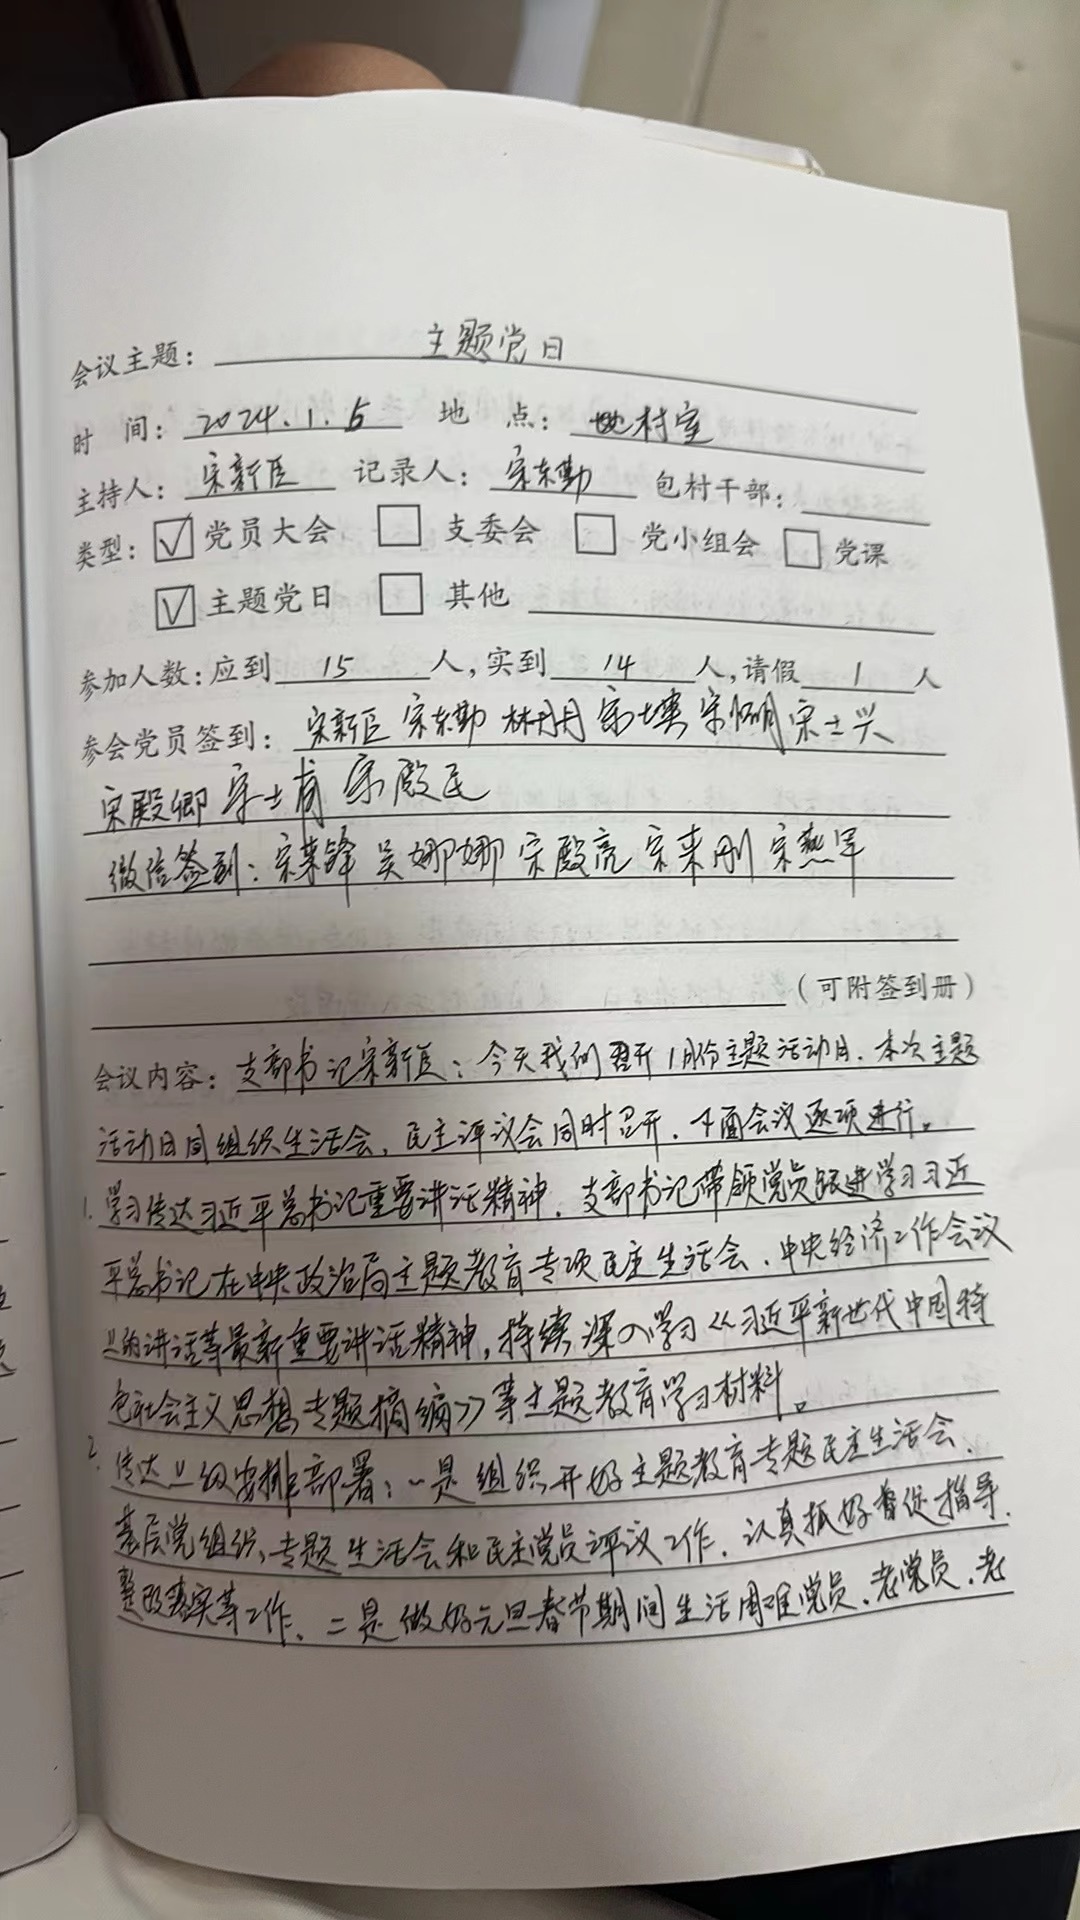 会议主题：主题党日
时 间：2024.1.5 地 点：村室
主持人：宋新臣 记录人：宋东勤 包村干部：
类型：☑党员大会 □支委会 □党小组会 □党课
☑主题党日 □其他
参加人数：应到15人，实到14人，请假1人
参会党员签到：宋新臣 宋东勤 林丹丹 宋士英 宋炳明 宋士兴
宋殿卿 宋士甫 宋殿民
微信签到：宋荣锋 吴娜娜 宋殿亮 宋来刚 宋燕军
（可附签到册）
会议内容：支部书记宋新臣：今天我们召开1月份主题活动日．本次主题
活动日同组织生活会、民主评议会同时召开．下面会议逐项进行。
1.学习传达习近平总书记重要讲话精神．支部书记带领党员跟进学习习近
平总书记在中央政治局主题教育专项民主生活会、中央经济工作会议
上的讲话等最新重要讲话精神，持续深入学习《习近平新时代中国特
色社会主义思想专题摘编》等主题教育学习材料。
2.传达上级安排部署：一是组织开好主题教育专题民主生活会．
基层党组织、专题生活会和民主党员评议工作．认真抓好督促指导．
整改落实等工作．二是做好元旦春节期间生活困难党员．老党员．老